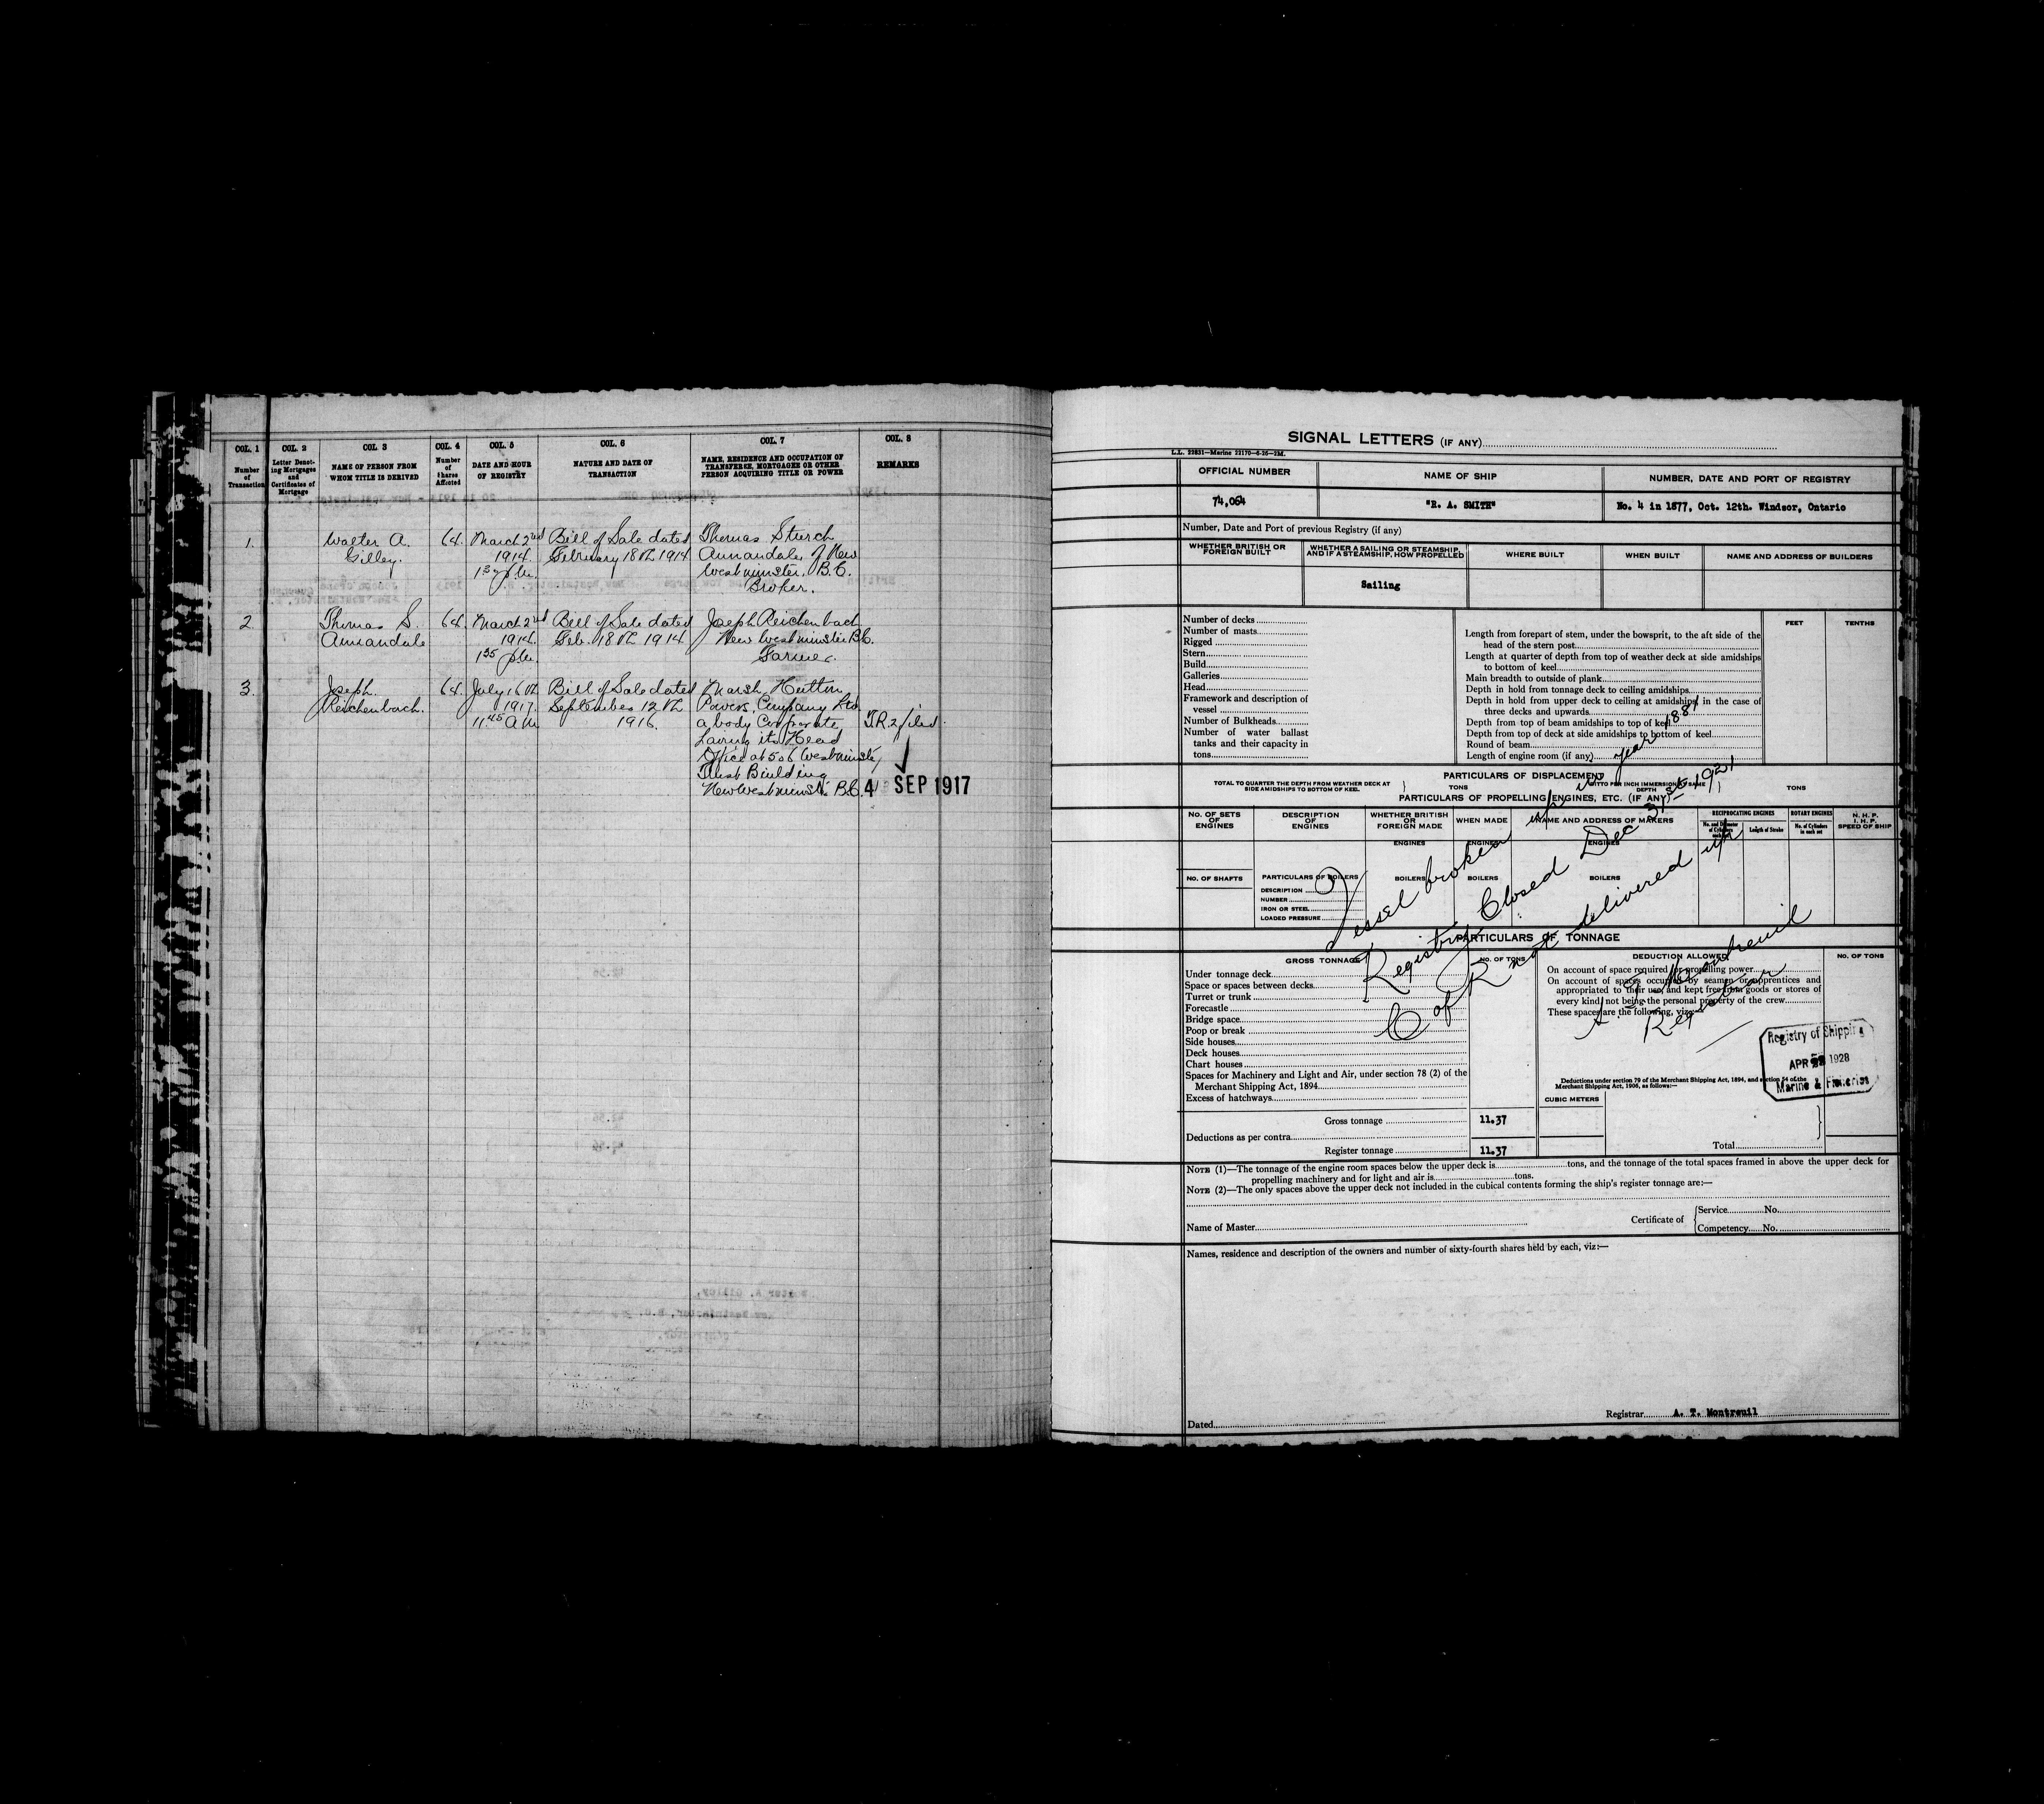 COL. 1
COL. 2
COL. 3
COL. 4
COL. 5
COL. 6
COL. 7
COL. 8
Number of Transaction
Letter Denoting Mortgages and Certificates of Mortgage
NAME OF PERSON FROM WHOM TITLE IS DERIVED
Number of Shares Affected
DATE AND HOUR OF REGISTRY
NATURE AND DATE OF TRANSACTION
NAME, RESIDENCE AND OCCUPATION OF TRANSFEREE, MORTGAGEE OR OTHER PERSON ACQUIRING TITLE OR POWER
REMARKS
1. Walter A. 64. March 2nd Bill of Sale dated Thomas Sturch
Gilley. 1914. February 18th 1914 Annandale of New
p.m. Westminster, B.C.
Broker.
2. Thomas S. 64. March 2nd Bill of Sale dated Joseph Reichenbach
Annandale 1914. Feb. 18th 1914 New Westminster B.C.
1 35 p.m. Farmer.
3. Joseph 64. July 16th Bill of Sale dated Marsh Hutton
Reichenbach. 1917. September 12th Powers Company Ltd.
11 45 a m 1916. a body Corporate T.R.2 filed
having its Head
Office at 506 Westminster
Trust Building
New Westminster B.C.
4 SEP 1917
SIGNAL LETTERS (IF ANY)
L.L. 22831—Marine 22170—6-26—2M.
OFFICIAL NUMBER
NAME OF SHIP
NUMBER, DATE AND PORT OF REGISTRY
74,064
"R. A. SMITH"
No. 4 in 1877, Oct. 12th. Windsor, Ontario
Number, Date and Port of previous Registry (if any)
WHETHER BRITISH OR FOREIGN BUILT
WHETHER A SAILING OR STEAMSHIP, AND IF A STEAMSHIP, HOW PROPELLED
WHERE BUILT
WHEN BUILT
NAME AND ADDRESS OF BUILDERS
Sailing
Number of decks
Number of masts
Rigged
Stern
Build
Galleries
Head
Framework and description of
vessel
Number of Bulkheads
Number of water ballast
tanks and their capacity in
tons
FEET
TENTHS
Length from forepart of stem, under the bowsprit, to the aft side of the
head of the stern post
Length at quarter of depth from top of weather deck at side amidships
to bottom of keel
Main breadth to outside of plank
Depth in hold from tonnage deck to ceiling amidships
Depth in hold from upper deck to ceiling at amidships, in the case of
three decks and upwards
Depth from top of beam amidships to top of keel
Depth from top of deck at side amidships to bottom of keel
Round of beam
Length of engine room (if any)
PARTICULARS OF DISPLACEMENT
TOTAL TO QUARTER THE DEPTH FROM WEATHER DECK AT SIDE AMIDSHIPS TO BOTTOM OF KEEL
TONS
DITTO PER INCH IMMERSION AT SAME DEPTH
TONS
PARTICULARS OF PROPELLING ENGINES, ETC. (IF ANY)
NO. OF SETS OF ENGINES
DESCRIPTION OF ENGINES
WHETHER BRITISH OR FOREIGN MADE
WHEN MADE
NAME AND ADDRESS OF MAKERS
RECIPROCATING ENGINES
ROTARY ENGINES
N. H. P.
I. H. P.
SPEED OF SHIP
No. and Diameter of Cylinders each set
Length of Stroke
No. of Cylinders in each set
ENGINES
ENGINES
ENGINES
NO. OF SHAFTS
PARTICULARS OF BOILERS
BOILERS
BOILERS
BOILERS
DESCRIPTION
NUMBER
IRON OR STEEL
LOADED PRESSURE
Vessel broken up in year 1881
Registry Closed Dec 31st 1921
C of R not delivered up
A. T. Montreuil
Registrar
PARTICULARS OF TONNAGE
GROSS TONNAGE
NO. OF TONS
DEDUCTION ALLOWED
NO. OF TONS
Under tonnage deck
Space or spaces between decks
Turret or trunk
Forecastle
Bridge space
Poop or break
Side houses
Deck houses
Chart houses
Spaces for Machinery and Light and Air, under section 78 (2) of the
Merchant Shipping Act, 1894
Excess of hatchways
On account of space required for propelling power
On account of spaces occupied by seamen or apprentices and
appropriated to their use and kept free from goods or stores of
every kind, not being the personal property of the crew
These spaces are the following, viz:—
Registry of Shipping
APR 1928
Marine & Fisheries
Deductions under section 79 of the Merchant Shipping Act, 1894, and section 54 of the
Merchant Shipping Act, 1906, as follows:—
CUBIC METERS
Gross tonnage 11.37
Deductions as per contra
Register tonnage 11.37
Total
NOTE (1)—The tonnage of the engine room spaces below the upper deck is tons, and the tonnage of the total spaces framed in above the upper deck for
propelling machinery and for light and air is tons.
NOTE (2)—The only spaces above the upper deck not included in the cubical contents forming the ship's register tonnage are:—
Name of Master
Certificate of
Service No.
Competency No.
Names, residence and description of the owners and number of sixty-fourth shares held by each, viz:—
Dated
Registrar A. T. Montreuil